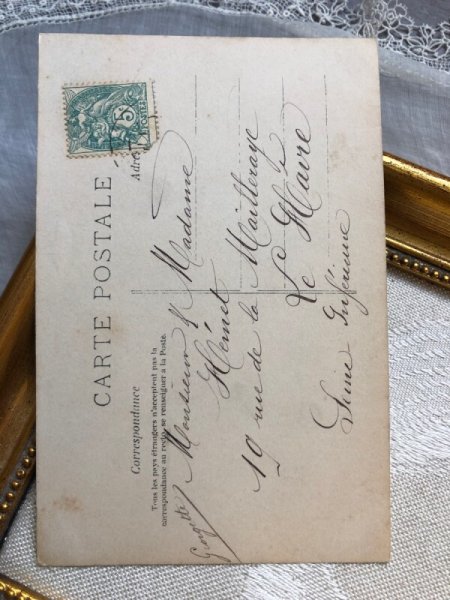 CARTE POSTALE
Correspondance
Tous les pays étrangers n'acceptent pas la
correspondance au recto, se renseigner à la Poste.
Adre
5
POSTES
Monsieur & Madame
Hémet
19 rue de la Mailleraye
Le Hâvre
Seine Inférieure
Georgette